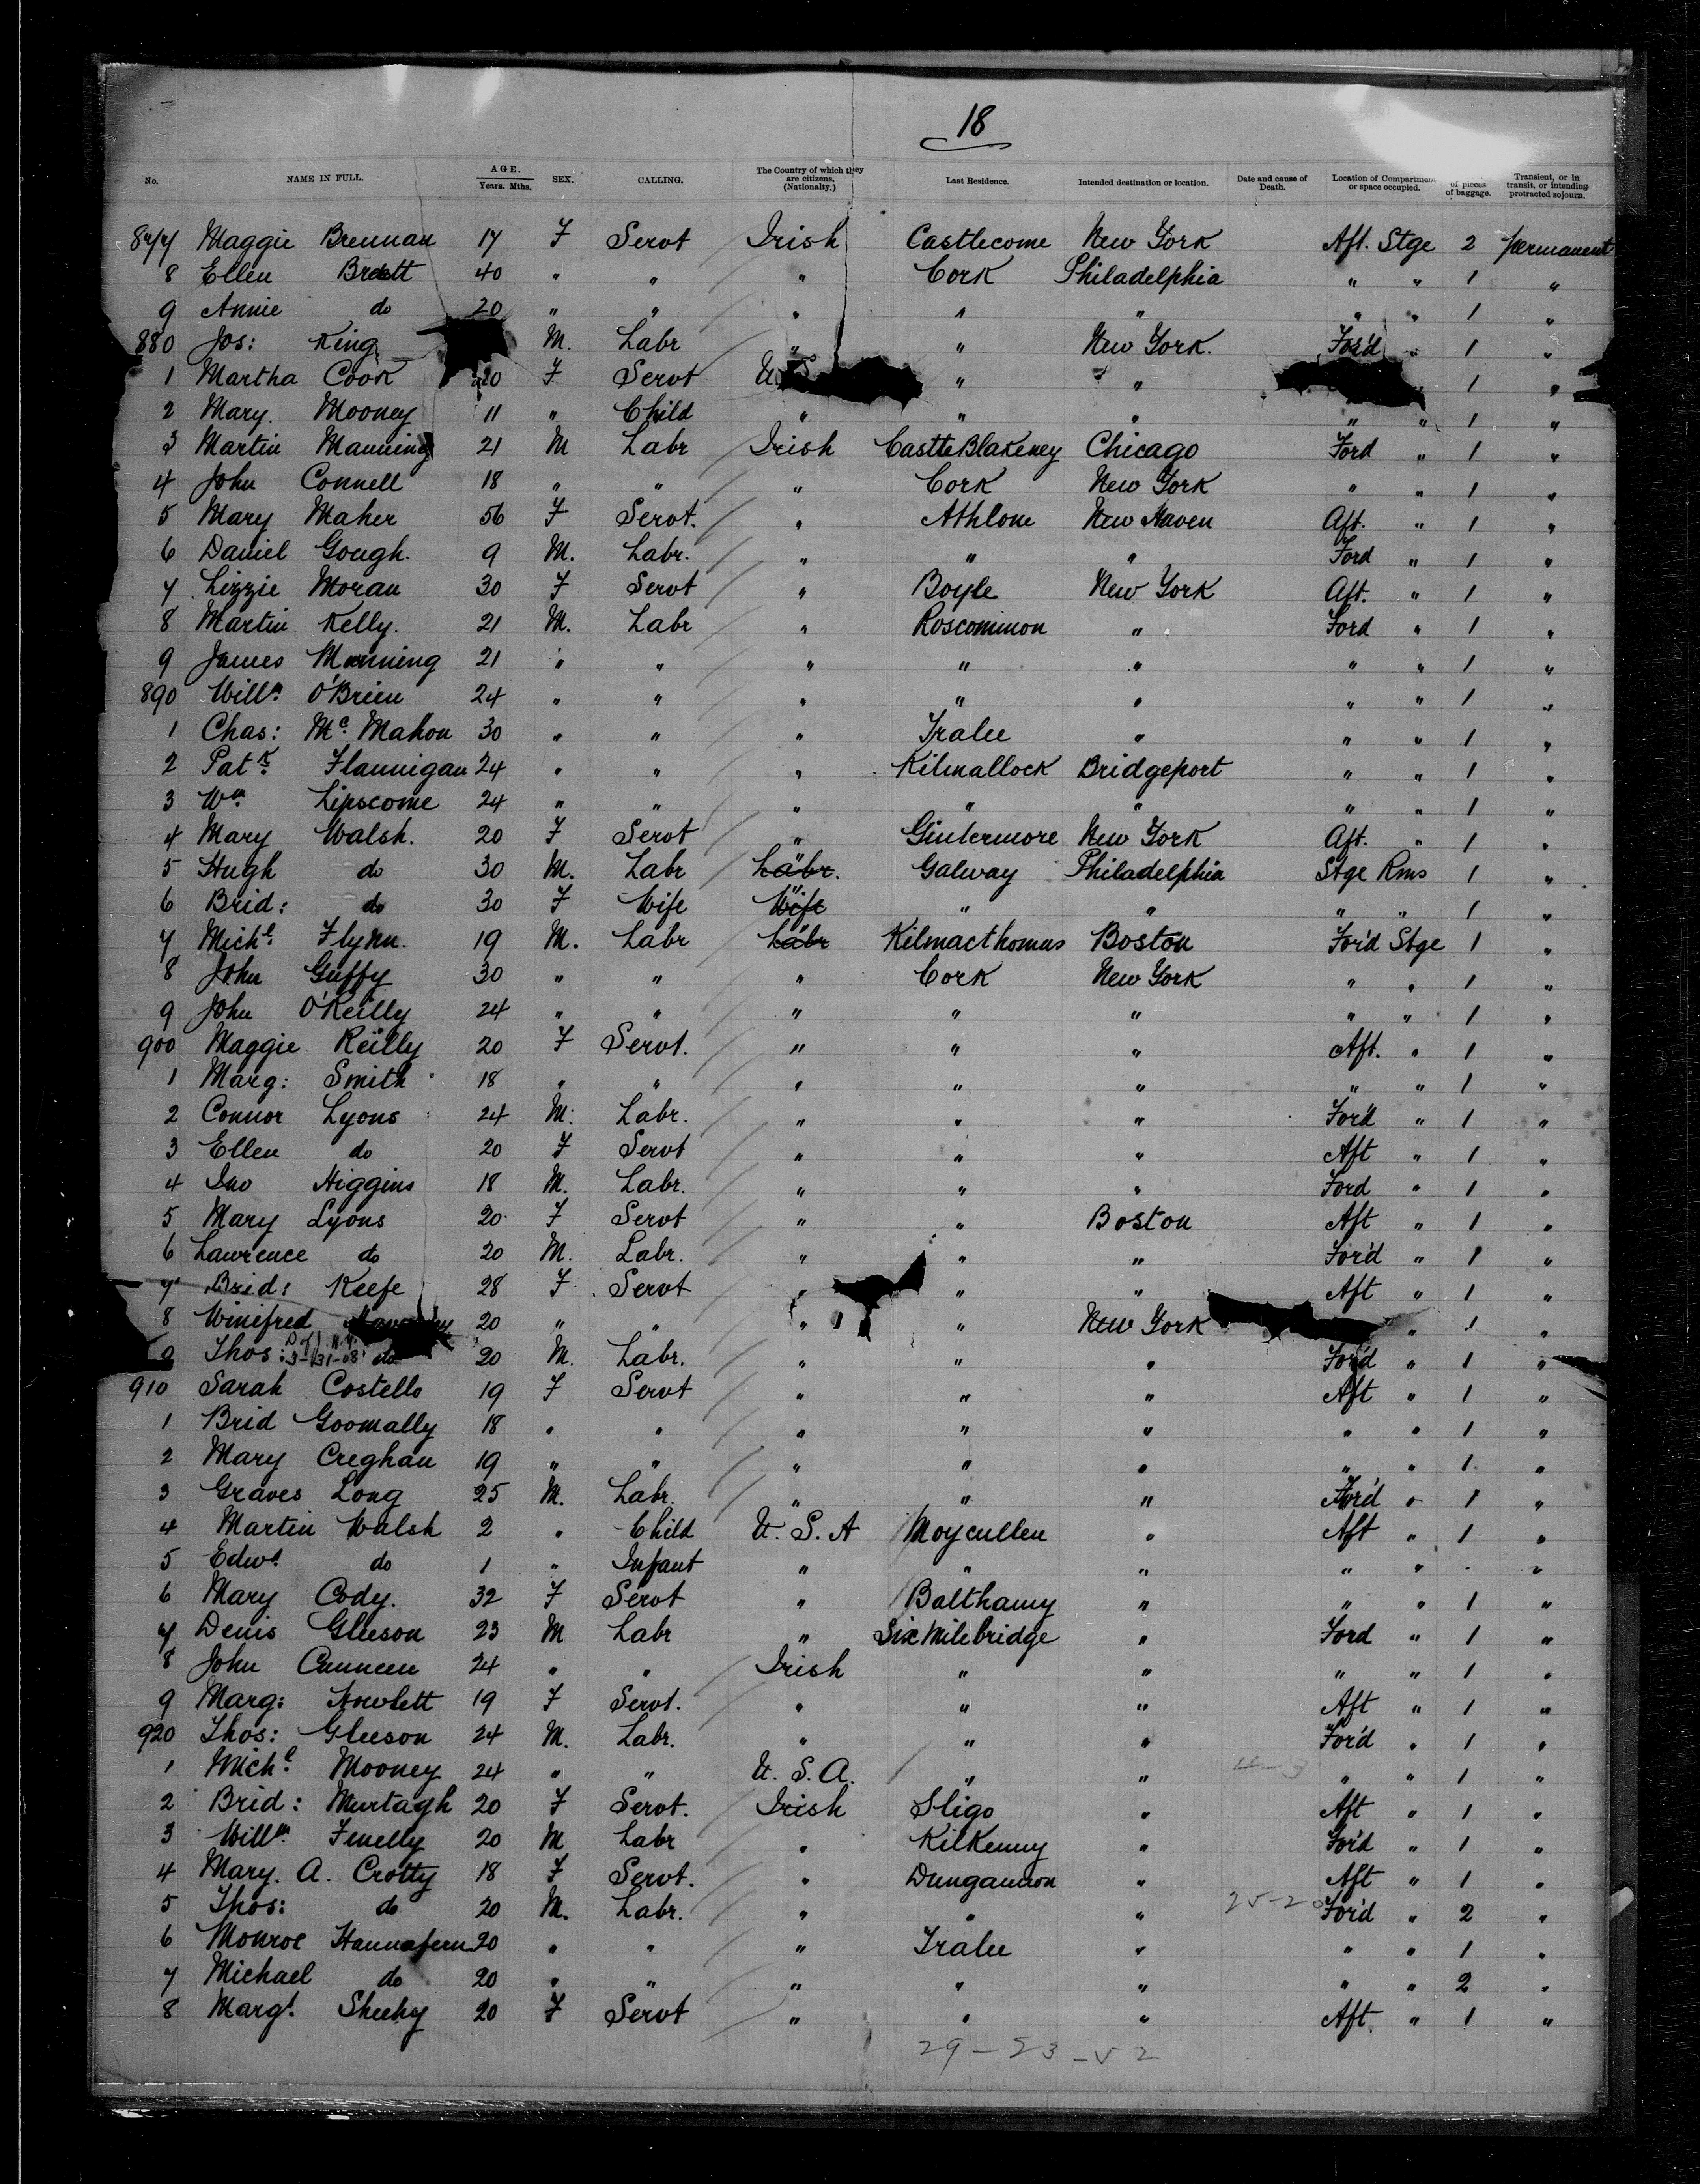 18
No. NAME IN FULL. AGE. Years. Mths. SEX. CALLING. The Country of which they are citizens. (Nationality.) Last Residence. Intended destination or location. Date and cause of Death. Location of Compartment or space occupied. of pieces of baggage. Transient, or in transit, or intending protracted sojourn.
877 Maggie Brennan 17 F Servt Irish Castlecome New York Aft. Stge 2 permanent
8 Ellen Brett 40 " " " Cork Philadelphia " " 1 "
9 Annie do 20 " " " " " " " 1 "
880 Jos: King M. Labr " " New York. For'd " 1 "
1 Martha Cook 20 F Servt U S " " " 1 "
2 Mary. Mooney 11 " Child " " " " " 1 "
3 Martin Manning 21 M Labr Irish CastleBlakeney Chicago Ford " 1 "
4 John Connell 18 " " " Cork New York " " 1 "
5 Mary Maher 56 F Servt. " Athlone New Haven Aft. " 1 "
6 Daniel Gough. 9 M. Labr. " " " Ford " 1 "
7 Lizzie Moran 30 F Servt " Boyle New York Aft. " 1 "
8 Martin Kelly. 21 M. Labr " Roscommon " Ford " 1 "
9 James Manning 21 " " " " " " " 1 "
890 Willm O'Brien 24 " " " " " " " 1 "
1 Chas: Mc Mahon 30 " " " Tralee " " " 1 "
2 Patk Flannigan 24 " " " Kilmallock Bridgeport " " 1 "
3 Wm Lipscome 24 " " " " " " " 1 "
4 Mary Walsh. 20 F Servt " Gintermore New York Aft. " 1 "
5 Hugh do 30 M. Labr Labr. " Galway Philadelphia Stge Rms 1 "
6 Brid: do 30 F Wife Wife " " " " " 1 "
7 Michl Flynn. 19 M. Labr Labr " Kilmacthomas Boston For'd Stge 1 "
8 John Guffy 30 " " " Cork New York " " 1 "
9 John O'Reilly 24 " " " " " " " 1 "
900 Maggie Reilly 20 F Servt. " " " Aft. " 1 "
1 Marg: Smith 18 " " " " " " " 1 "
2 Connor Lyons 24 M. Labr. " " " Ford " 1 "
3 Ellen do 20 F Servt " " " Aft " 1 "
4 Jno Higgins 18 M. Labr. " " " Ford " 1 "
5 Mary Lyons 20 F Servt " " Boston Aft " 1 "
6 Lawrence do 20 M. Labr. " " " For'd " 1 "
7 Brid: Keefe 28 F Servt " " " Aft " 1 "
8 Winifred 20 " " " " New York " 1 "
9 Thos: 3-31-08 do 20 M. Labr. " " For'd " 1 "
910 Sarah Costello 19 F Servt " " " Aft " 1 "
1 Brid Goomally 18 " " " " " " " 1 "
2 Mary Creghan 19 " " " " " " " 1 "
3 Graves Long 25 M. Labr. " " " For'd " 1 "
4 Martin Walsh 2 " Child U. S. A Moycullen " Aft " 1 "
5 Edwd do 1 " Infant " " " " " "
6 Mary Cody. 32 F Servt " Balthany " " " 1 "
7 Denis Gleeson 23 M Labr " Six Mile bridge " Ford " 1 "
8 John Cunneen 24 " " Irish " " " " 1 "
9 Marg: Nowlett 19 F Servt. " " " Aft " 1 "
920 Thos: Gleeson 24 M. Labr. " " " For'd " 1 "
1 Michl Mooney 24 " " U. S. A. " " " " 1 "
2 Brid: Murtagh 20 F Servt. Irish Sligo " Aft " 1 "
3 Willm Finelly 20 M Labr " Kilkenny " For'd " 1 "
4 Mary. A. Crotty 18 F Servt. " Dungannon " Aft " 1 "
5 Thos: do 20 M. Labr. " " " For'd " 2 "
6 Monroe Hannafern 20 " " " Tralee " " " 1 "
7 Michael do 20 " " " " " " " 2 "
8 Margt Sheehy 20 F Servt " " " Aft. " 1 "
29-23-52